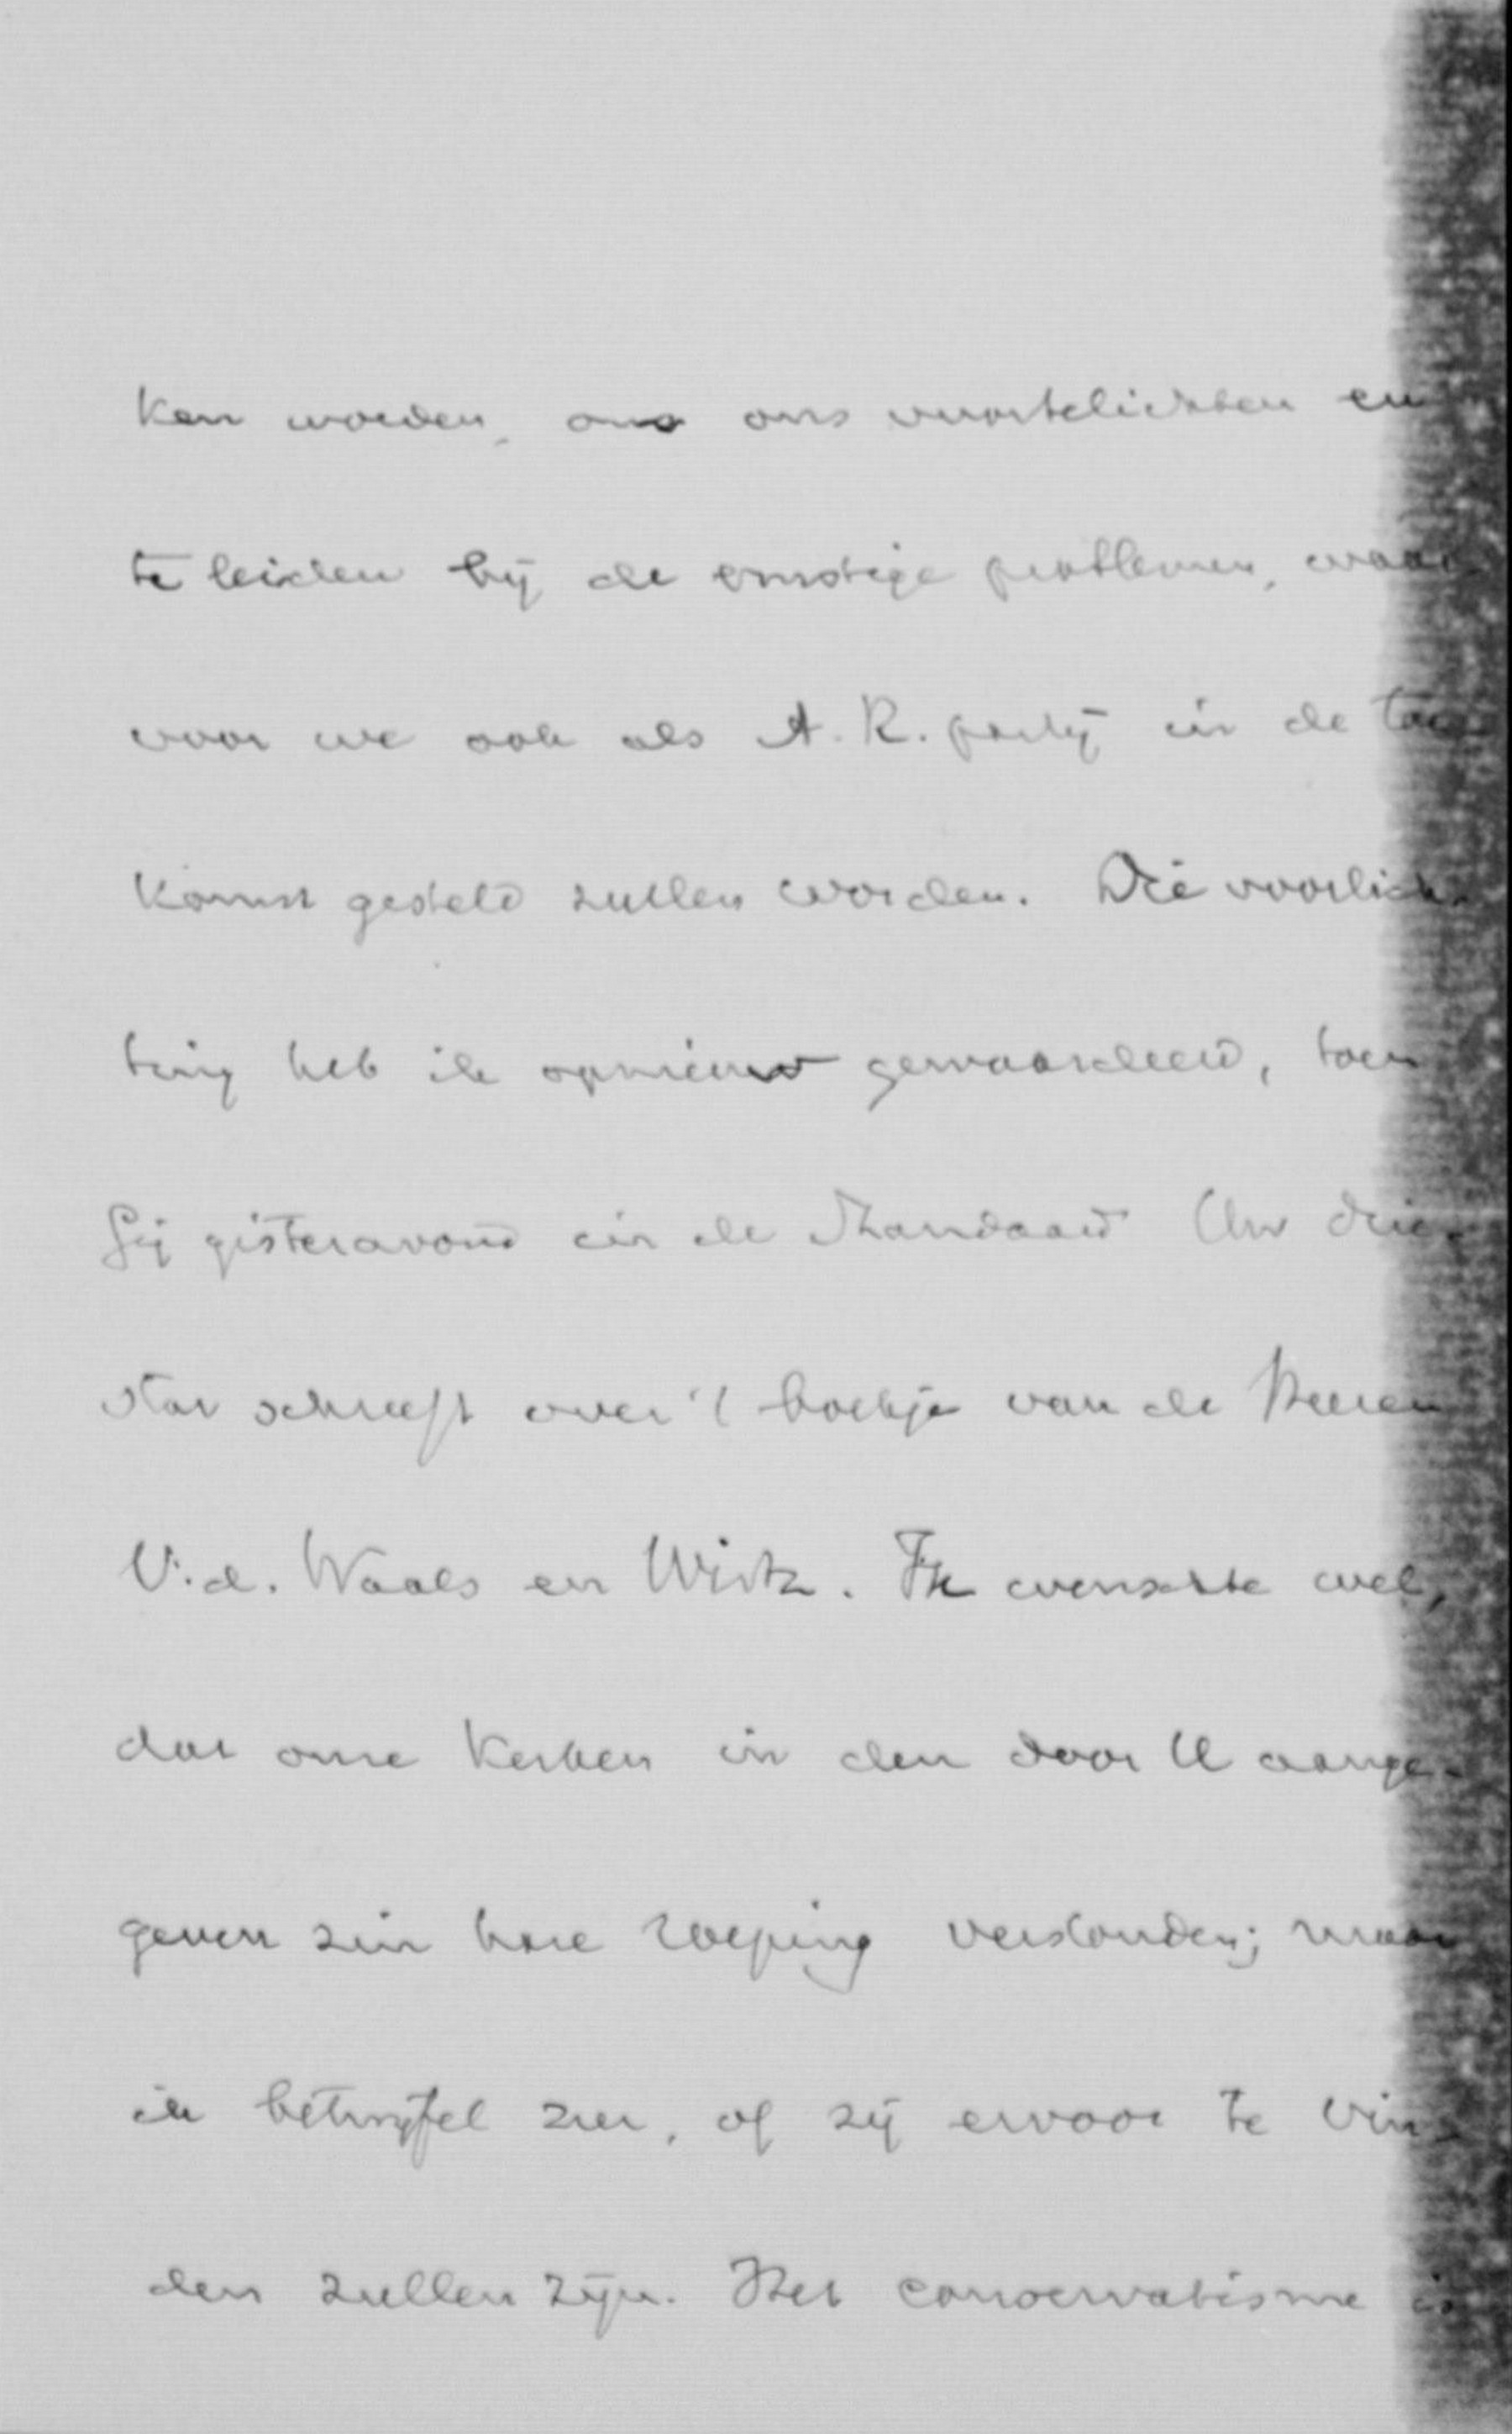 ken worden, om ons voortelichten en
te leiden bij de ernstige problemen, waar-
voor we ook als A.R. partij in de toe
komst gesteld zullen worden. Die voorlich-
ting heb ik opnieuw gewaardeerd, toen
Gij gisteravond in de Standaard Uw drie-
star schreeft over 't boekje van de Heeren
V.d. Waals en Wirtz. Ik wenschte wel,
dat onze Kerken in den door U aange-
geven zin hare roeping verstonden; maar
ik betwijfel zeer, of zij ervoor te vin-
den zullen zijn. Het conservatisme is